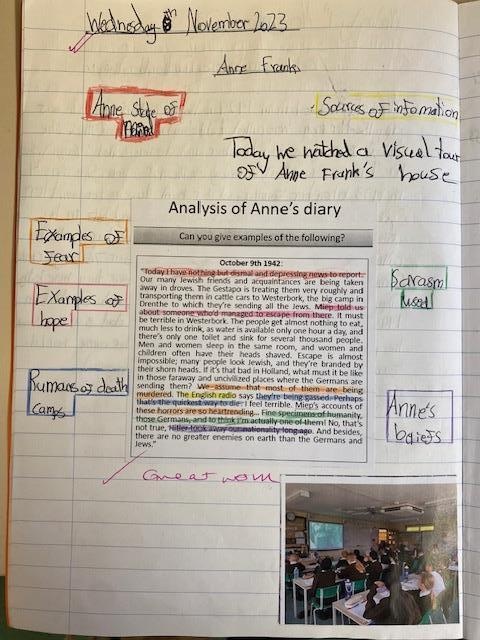 Wednesday 8th November 2023
Anne Frank
Anne State of
Mind
Sources of infomation
Today we watched a visual tour
of Anne Frank's house
Analysis of Anne's diary
Can you give examples of the following?
Examples of
fear
Examples of
hope
Rumours of death
camps
October 9th 1942:
"Today I have nothing but dismal and depressing news to report.
Our many Jewish friends and acquaintances are being taken
away in droves. The Gestapo is treating them very roughly and
transporting them in cattle cars to Westerbork, the big camp in
Drenthe to which they're sending all the Jews. Miep told us
about someone who'd managed to escape from there. It must
be terrible in Westerbork. The people get almost nothing to eat,
much less to drink, as water is available only one hour a day, and
there's only one toilet and sink for several thousand people.
Men and women sleep in the same room, and women and
children often have their heads shaved. Escape is almost
impossible; many people look Jewish, and they're branded by
their shorn heads. If it's that bad in Holland, what must it be like
in those faraway and uncivilized places where the Germans are
sending them? We assume that most of them are being
murdered. The English radio says they're being gassed. Perhaps
that's the quickest way to die. I feel terrible. Miep's accounts of
these horrors are so heartrending... Fine specimens of humanity,
those Germans, and to think I'm actually one of them! No, that's
not true, Hitler took away our nationality long ago. And besides,
there are no greater enemies on earth than the Germans and
Jews."
Sarcasm
used
Anne's
beliefs
Great work